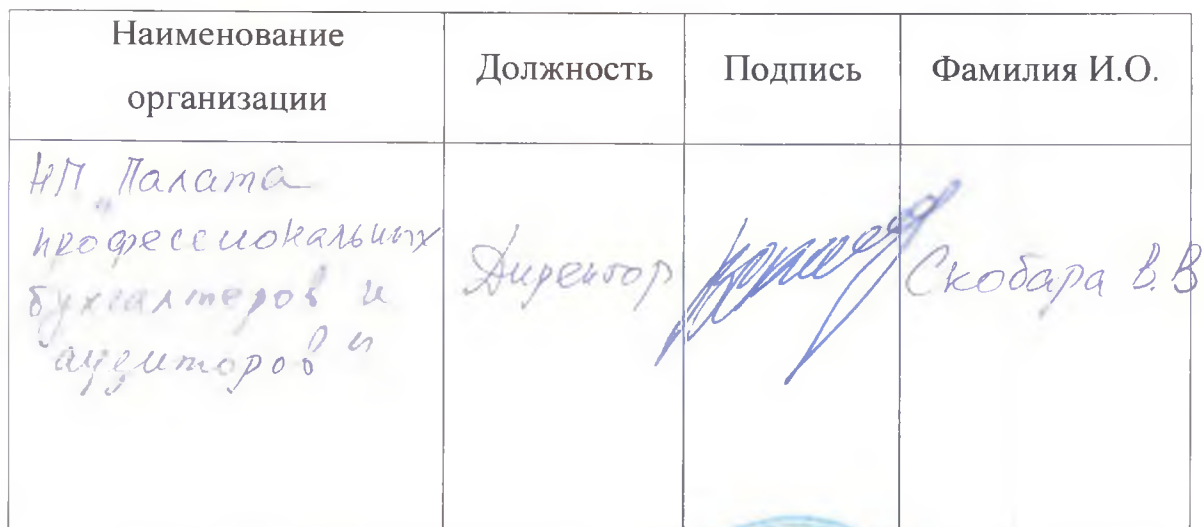 Наименование
организации
Должность
Подпись
Фамилия И.О.
НП „Палата
профессиональных
бухгалтеров и
аудиторов"
Директор
Скобара В.В